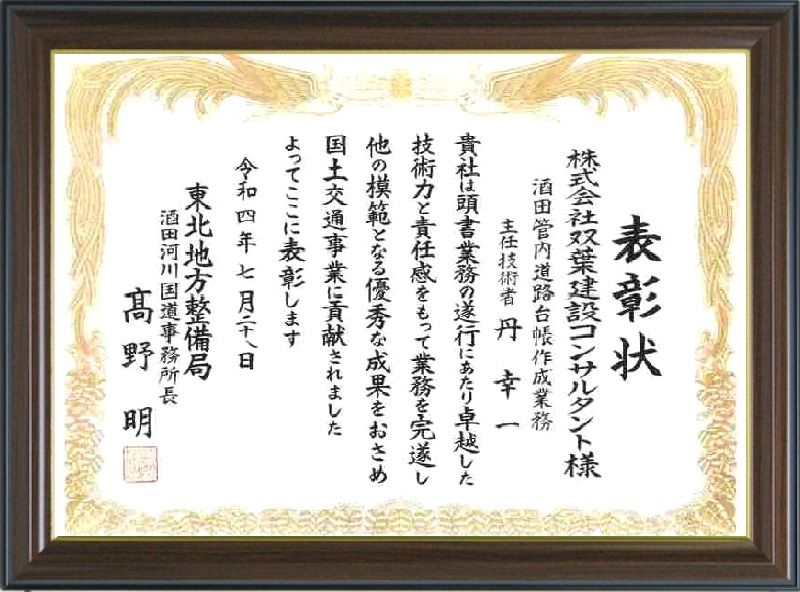 表彰状
株式会社双葉建設コンサルタント様
酒田管内道路台帳作成業務
主任技術者 丹幸一
貴社は頭書業務の遂行にあたり卓越した
技術力と責任感をもって業務を完遂し
他の模範となる優秀な成果をおさめ
国土交通事業に貢献されました
よってここに表彰します
令和四年七月二十八日
東北地方整備局
酒田河川国道事務所長
髙野明